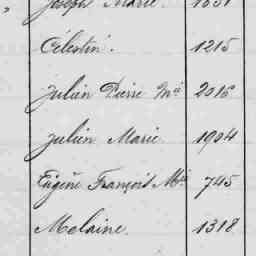 Joseph Marie. 1651
Célestin. 1215
Julien Pierre Mie 2016
Julien Marie 1904
Eugène François Mie 745
Melaine. 1318